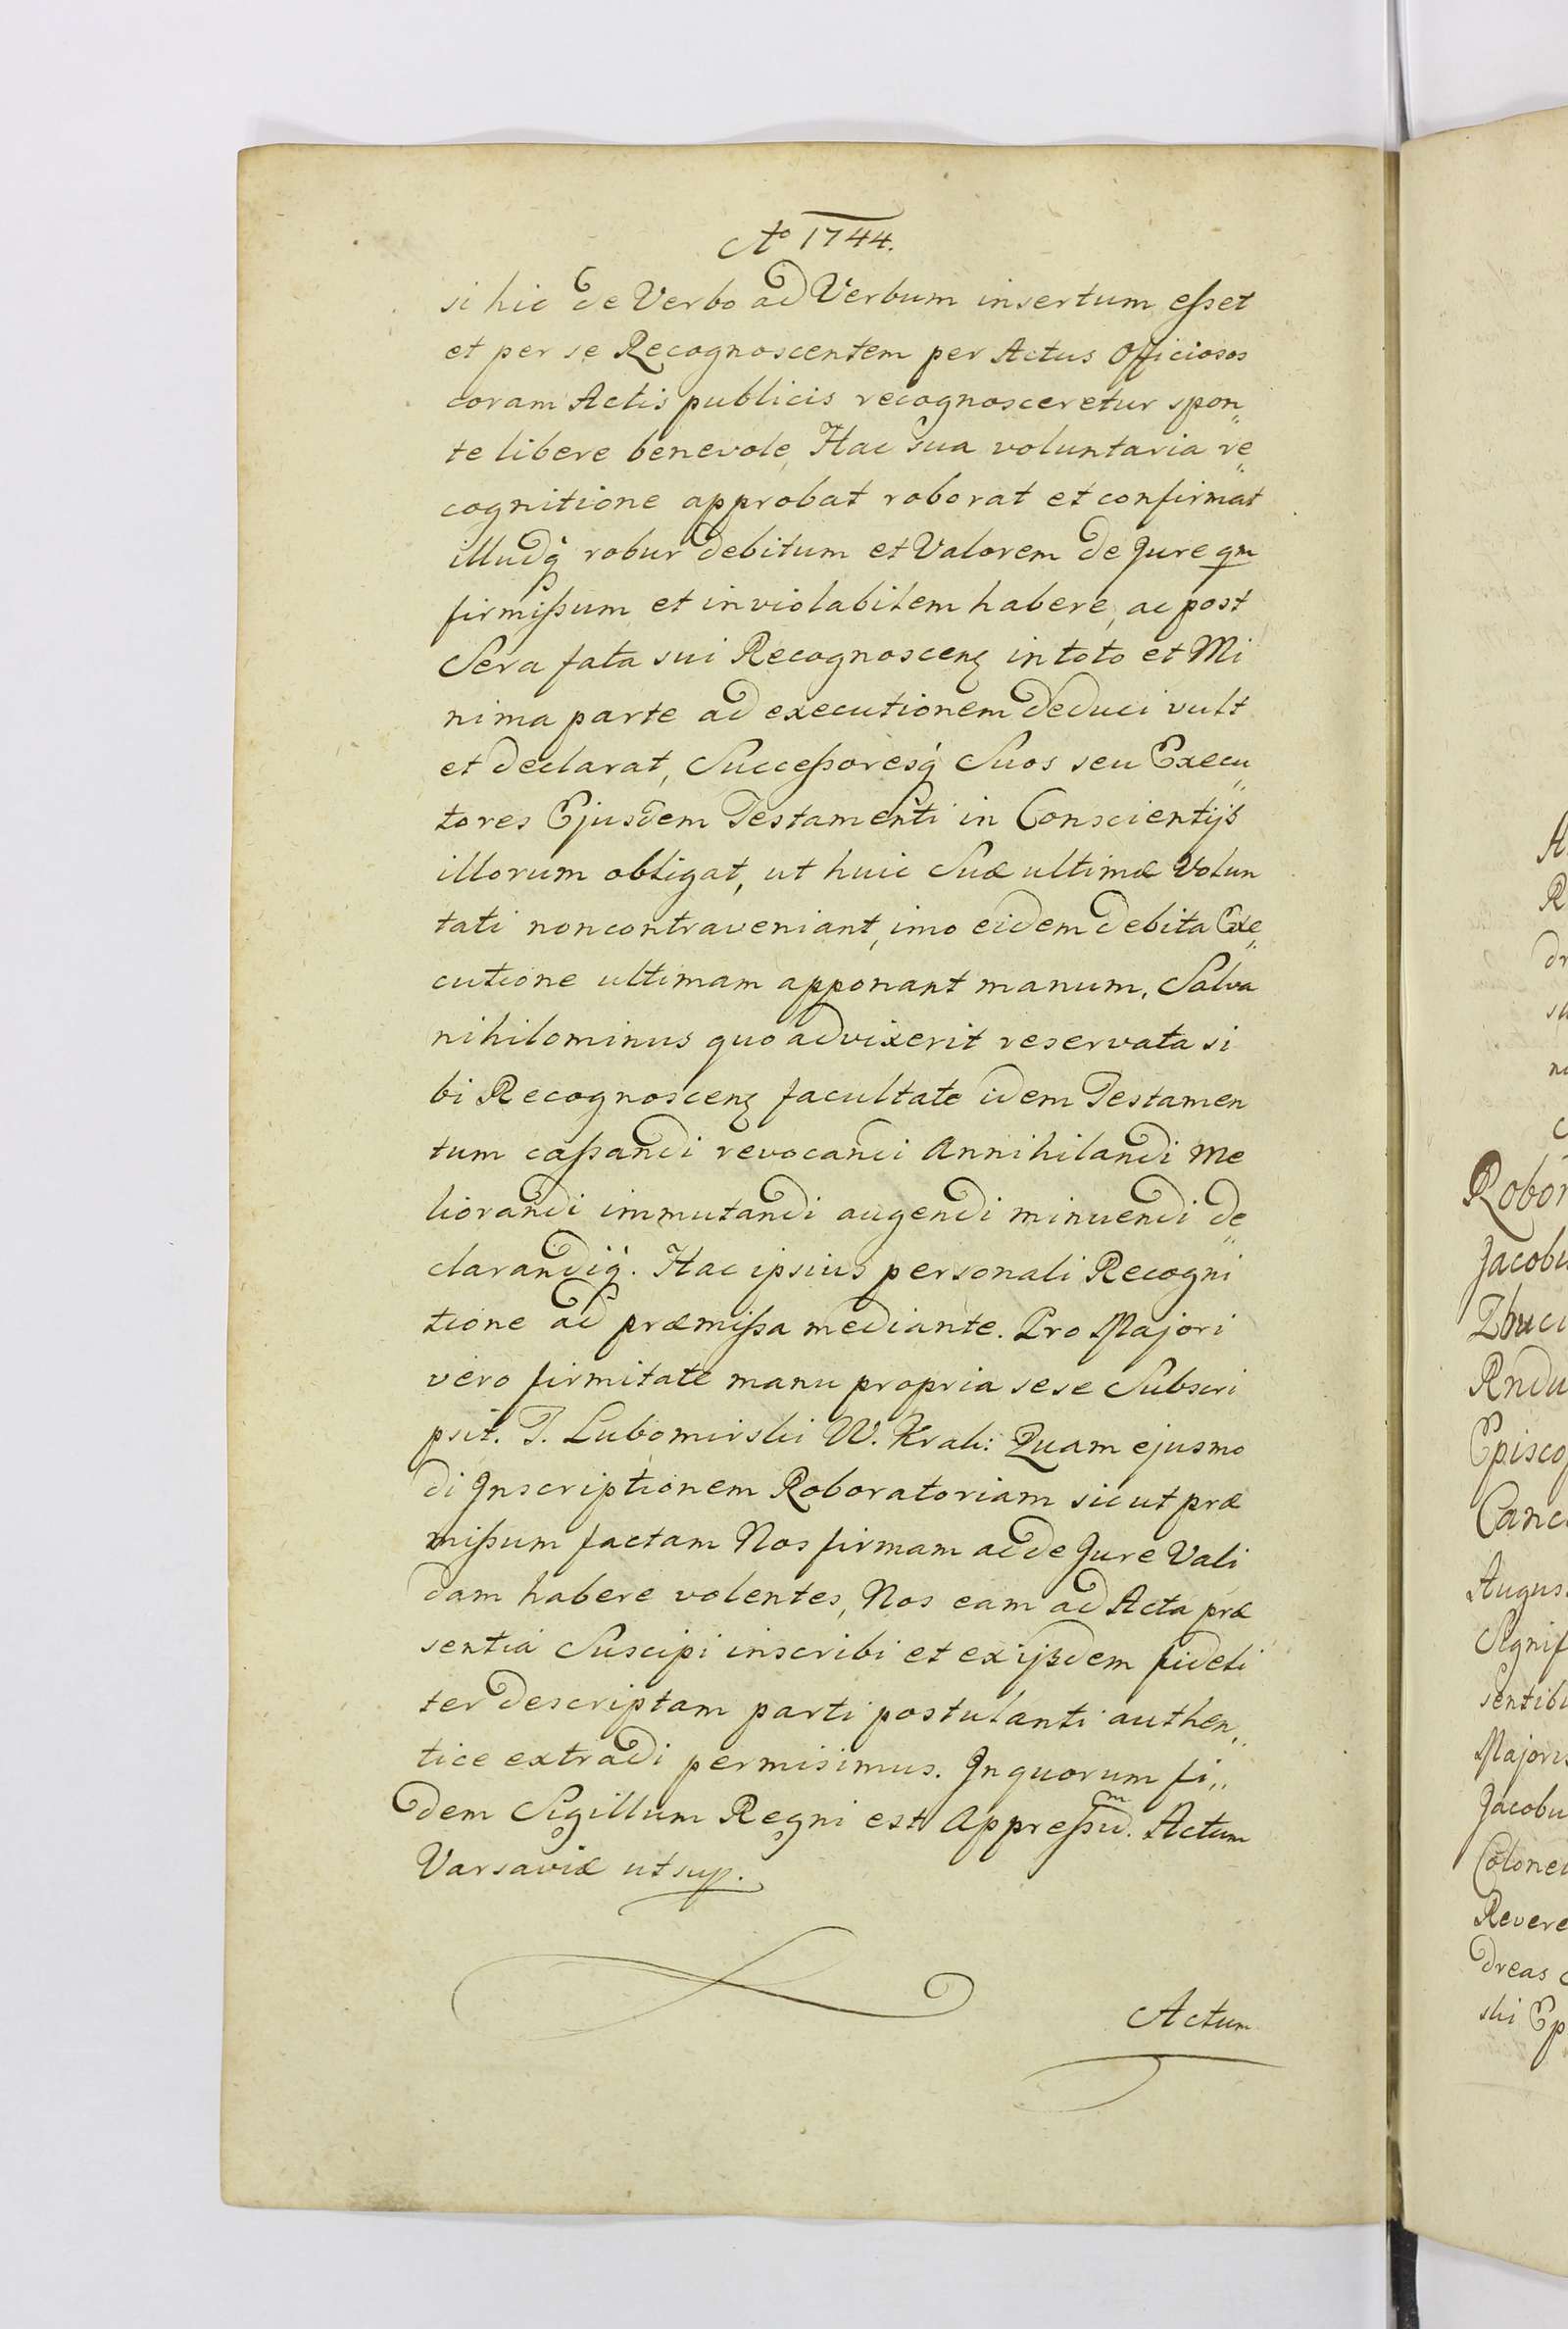 Aō 1744.
si hic de Verbo ad Verbum insertum eſset
et per se Recognoscentem per Actus Officiosos
coram Actis publicis recognosceretur spon„
te libere benevole, Hac sua voluntaria re„
cognitione approbat roborat et confirmat
illudq́ robur debitum et Valorem de Jure qm
firmiſsum et inviolabilem habere, ac post
Sera fata sui Recognoscenꝫ in toto et Mi
nima parte ad executionem deduci vult
et declarat, Succeſsoresq́ Suos seu Execu„
tores Ejusdem Testamenti in Conscientijs
illorum obligat, ut huic Suæ ultimæ Volun
tati non contraveniant, imo eidem debita Exe„
cutione ultimam apponant manum, Salva
nihilominus quo advixerit reservata si
bi Recognoscenꝫ facultate idem Testamen
tum caſsandi revocandi Annihilandi Me
liorandi immutandi augendi minuendi de„
clarandiq́. Hac ipsius personali Recogni
tione ad præmiſsa mediante. Pro Majori
vero firmitate manu propria sese Subscri
psit. T. Lubomirski W. Krak: Quam ejusmo
di Inscriptionem Roboratoriam sicut præ
miſsum factam Nos firmam ac de Jure Vali
dam habere volentes, Nos eam ad Acta præ
sentia Suscipi inscribi et ex ijsdem fideli
ter descriptam parti postulanti authen„
tice extradi permisimus. In quorum fi„
dem Sigillum Regni est Appreſsū. Actum
Varsaviæ ut sup.
Actum
Robor
Jacobu
Rndu
Episcop
Canc
Augus
Signif
sentibu
Majoris
Jacobu
Colonel
Revere
dreas
ski Ep